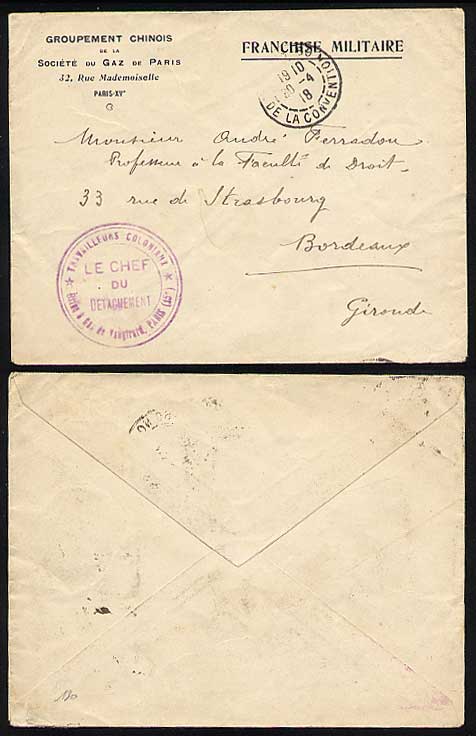 GROUPEMENT CHINOIS
DE LA
SOCIÉTÉ DU GAZ DE PARIS
32, Rue Mademoiselle
PARIS-XVᵉ
FRANCHISE MILITAIRE
1910
30 -4
18
DE LA CONVENTION
Monsieur André Ferradou
Professeur à la Faculté de Droit
33 rue de Strasbourg
Bordeaux
Gironde
★ TRAVAILLEURS COLONIAUX ★
LE CHEF
DU
DÉTACHEMENT
Usine à Gaz de Vaugirard, PARIS (15ᵉ)
120